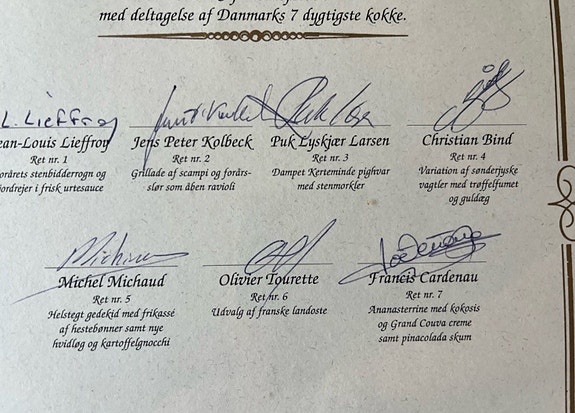 med deltagelse af Danmarks 7 dygtigste kokke.
L. Lieffroy
ean-Louis Lieffroy
Ret nr. 1
orårets stenbidderrogn og
jordrejer i frisk urtesauce
Jens Peter Kolbeck
Ret nr. 2
Grillade af scampi og forårs-
slør som åben ravioli
Puk Lyskjær Larsen
Ret nr. 3
Dampet Kerteminde pighvar
med stenmorkler
Christian Bind
Ret nr. 4
Variation af sønderjyske
vagtler med trøffelfumet
og guldæg
Michel Michaud
Ret nr. 5
Helstegt gedekid med frikassé
af hestebønner samt nye
hvidløg og kartoffelgnocchi
Olivier Tourette
Ret nr. 6
Udvalg af franske landoste
Francis Cardenau
Ret nr. 7
Ananasterrine med kokosis
og Grand Couva creme
samt pinacolada skum